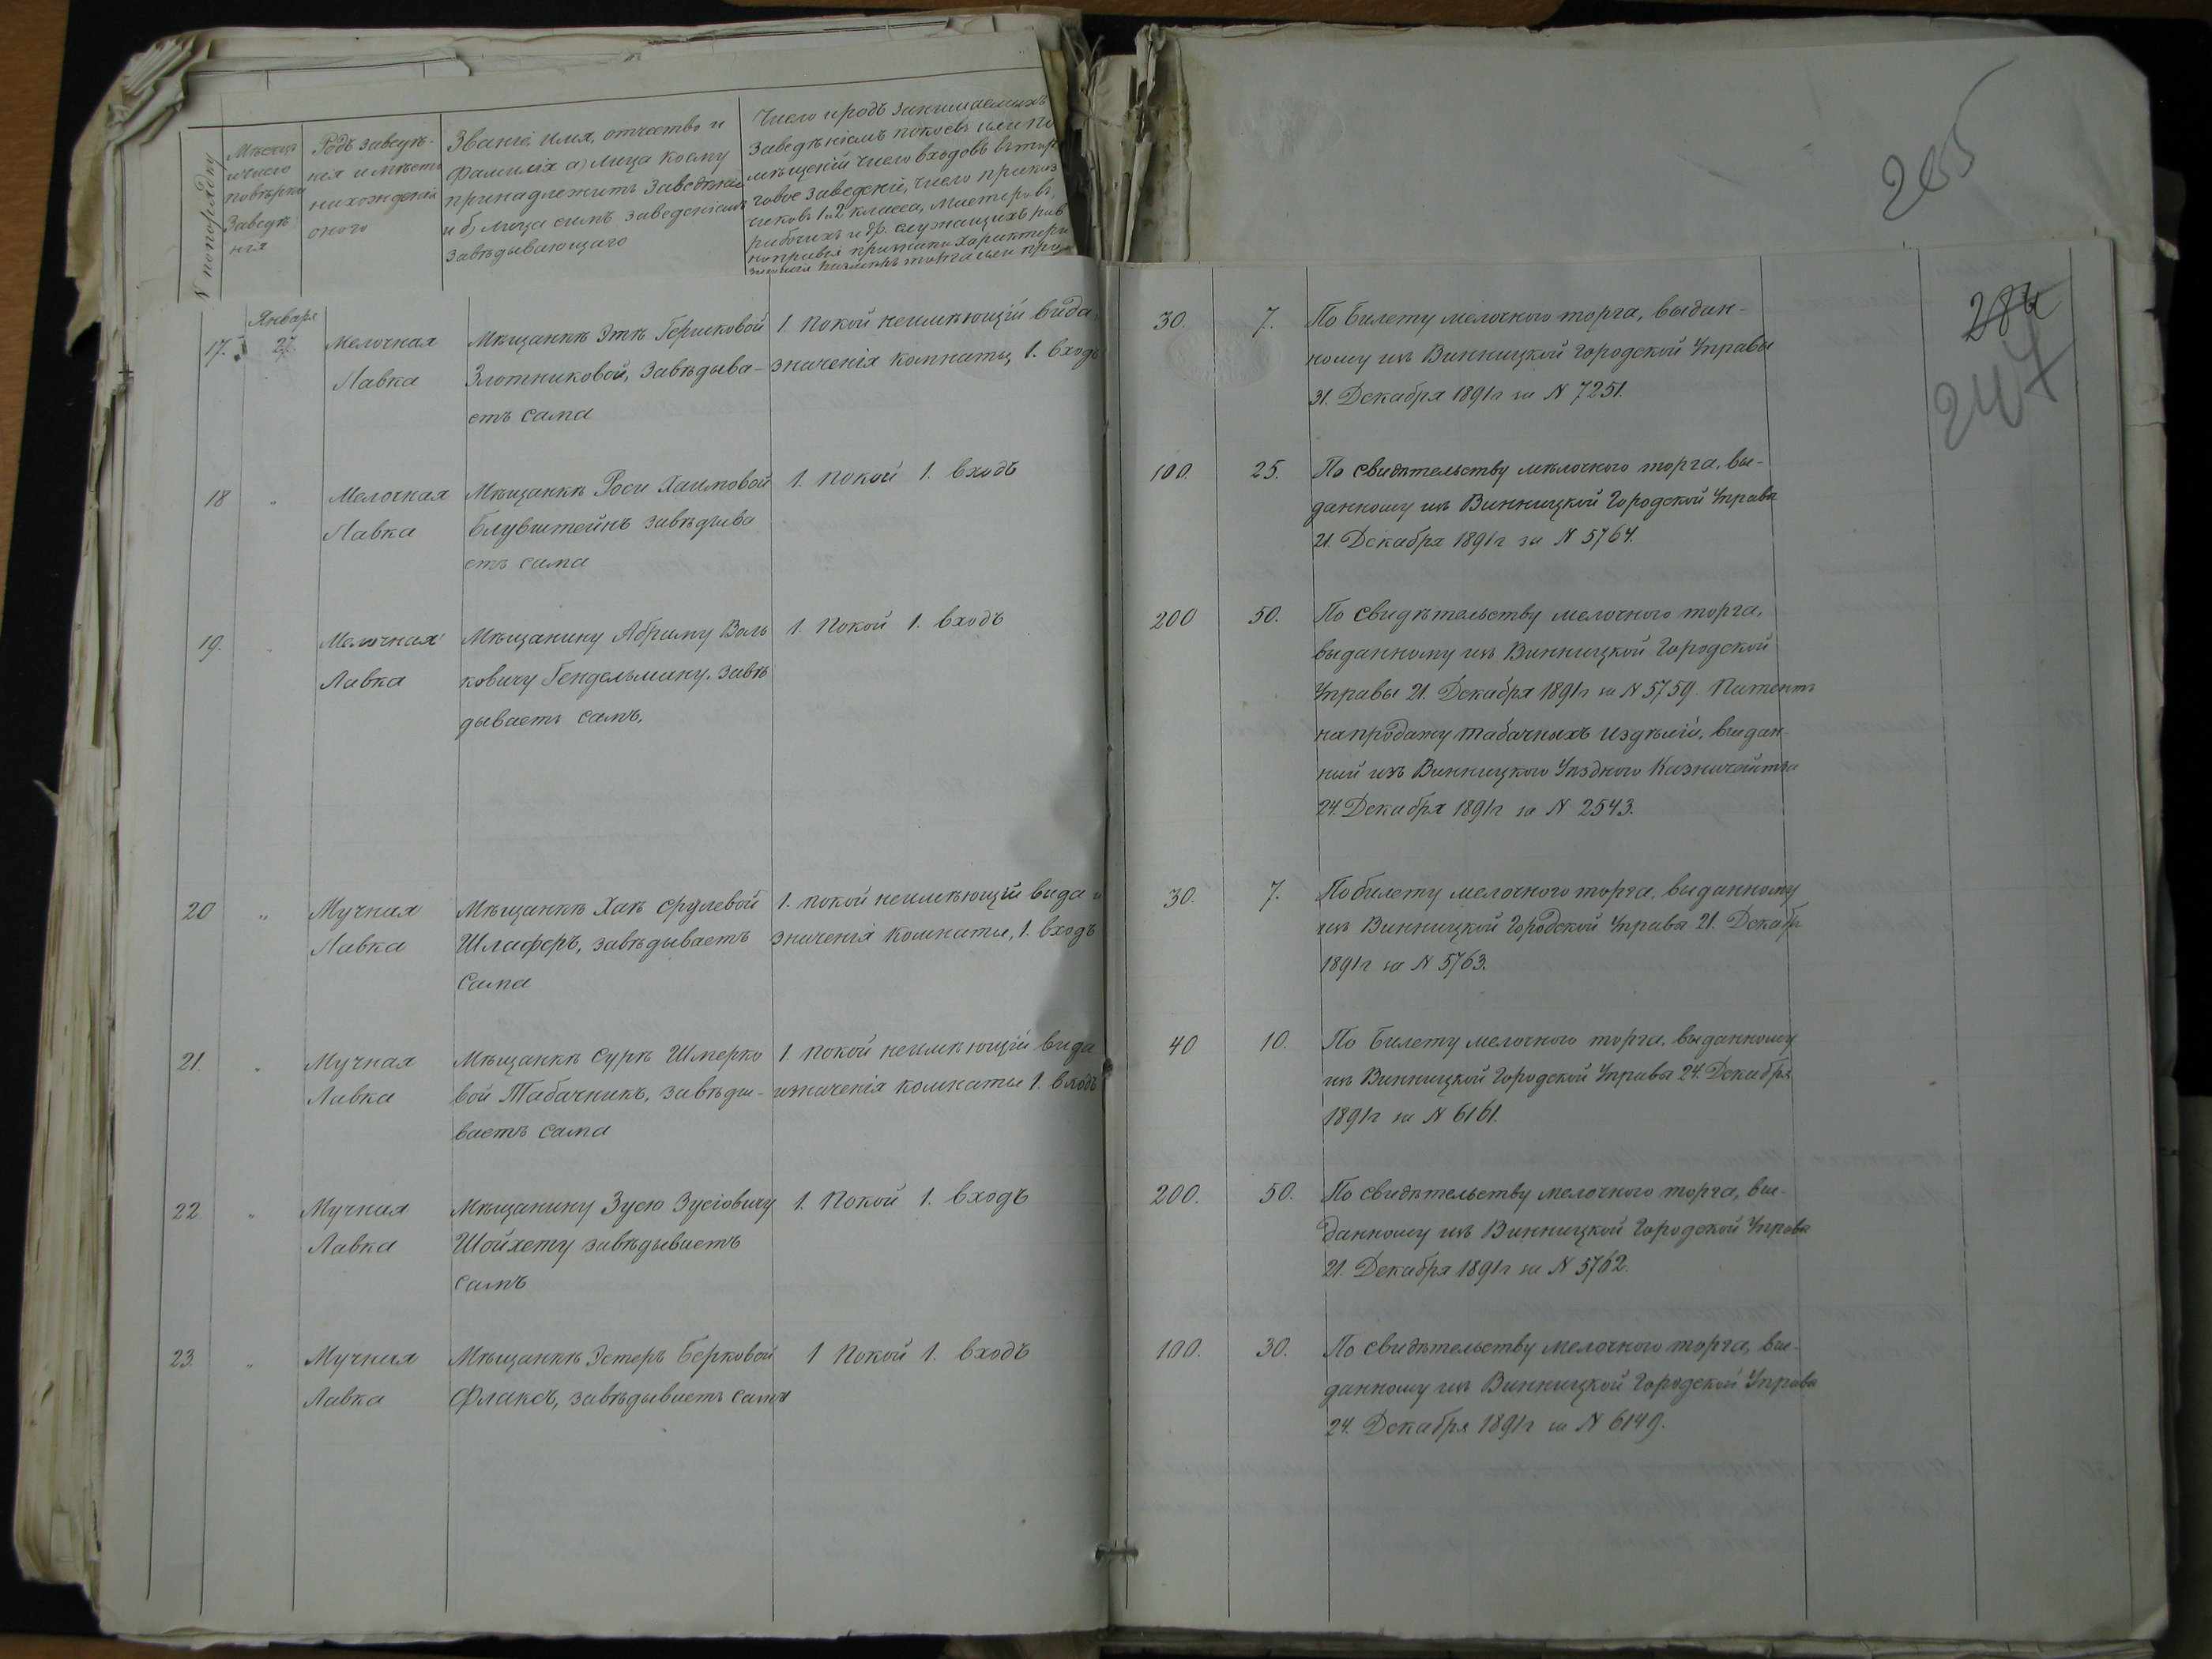 № по порядку
Мѣсяцъ
и число
повѣрки
Заведе
нія
Родъ заведе-
нія и мѣсто
нахожденія
оного
Званіе, имя, отчество и
фамилія а) лица коему
принадлежитъ заведеніе
и б) лица симъ заведеніемъ
завѣдывающаго
Число и родъ занимаемыхъ
заведеніемъ покоевъ или по
мѣщеній число входовъ въ тор
говое заведеніе, число приказ
чиковъ 1 и 2 класса, мастеровъ,
рабочихъ и др. служащихъ рав
17. Января 27. Мелочная Мѣщанкѣ Этѣ Гершковой 1. покой неимѣющій вида
Лавка Злотниковой, завѣдыва- значенія комнаты, 1. входъ
етъ сама
18 " Мелочная Мѣщанкѣ Роси Хаимовой 1. покой 1. входъ
Лавка Блувштейнъ завѣдыва
етъ сама
19. " Мелочная Мѣщанину Абраму Воль 1. покой 1. входъ
Лавка ковичу Гендельману, завѣ
дываетъ самъ.
20 " Мучная Мѣщанкѣ Хаѣ Срулевой 1. покой неимѣющій вида и
Лавка Шлаферъ, завѣдываетъ значенія комнаты, 1. входъ
сама
21. " Мучная Мѣщанкѣ Суркѣ Шмерко 1. покой неимѣющій вида
Лавка вой Табачникъ, завѣды- изначенія комнаты 1. входъ
ваетъ сама
22. " Мучная Мѣщанину Зусю Зусіовичу 1. покой 1. входъ
Лавка Шойхету завѣдываетъ
самъ
23. " Мучная Мѣщанкѣ Эстеръ Берковой 1 покой 1. входъ
Лавка Флаксъ, завѣдываетъ сама
265
284
247
30. 7. По билету мелочного торга, выдан-
ному изъ Винницкой Городской Управы
31. Декабря 1891 г за № 7251.
100. 25. По свидѣтельству мѣлочного торга, вы-
данному изъ Винницкой Городской Управы
21. Декабря 1891 г за № 5764.
200 50. По свидѣтельству мелочного торга,
выданному изъ Винницкой Городской
Управы 21. Декабря 1891 г за № 5759. Патентъ
на продажу табачныхъ издѣлій, выдан
ный изъ Винницкого Уѣздного Казначейства
24. Декабря 1891 г за № 2543.
30. 7. По билету мелочного торга, выданному
изъ Винницкой Городской Управы 21. Декабр
1891 г за № 5763.
40 10. По билету мелочного торга, выданному
изъ Винницкой Городской Управы 24. Декабря
1891 г за № 6161.
200. 50. По свидѣтельству мелочного торга, вы-
данному изъ Винницкой Городской Управы
21. Декабря 1891 г за № 5762.
100. 30. По свидѣтельству мелочного торга, вы-
данному изъ Винницкой Городской Управы
24. Декабря 1891 г за № 6149.